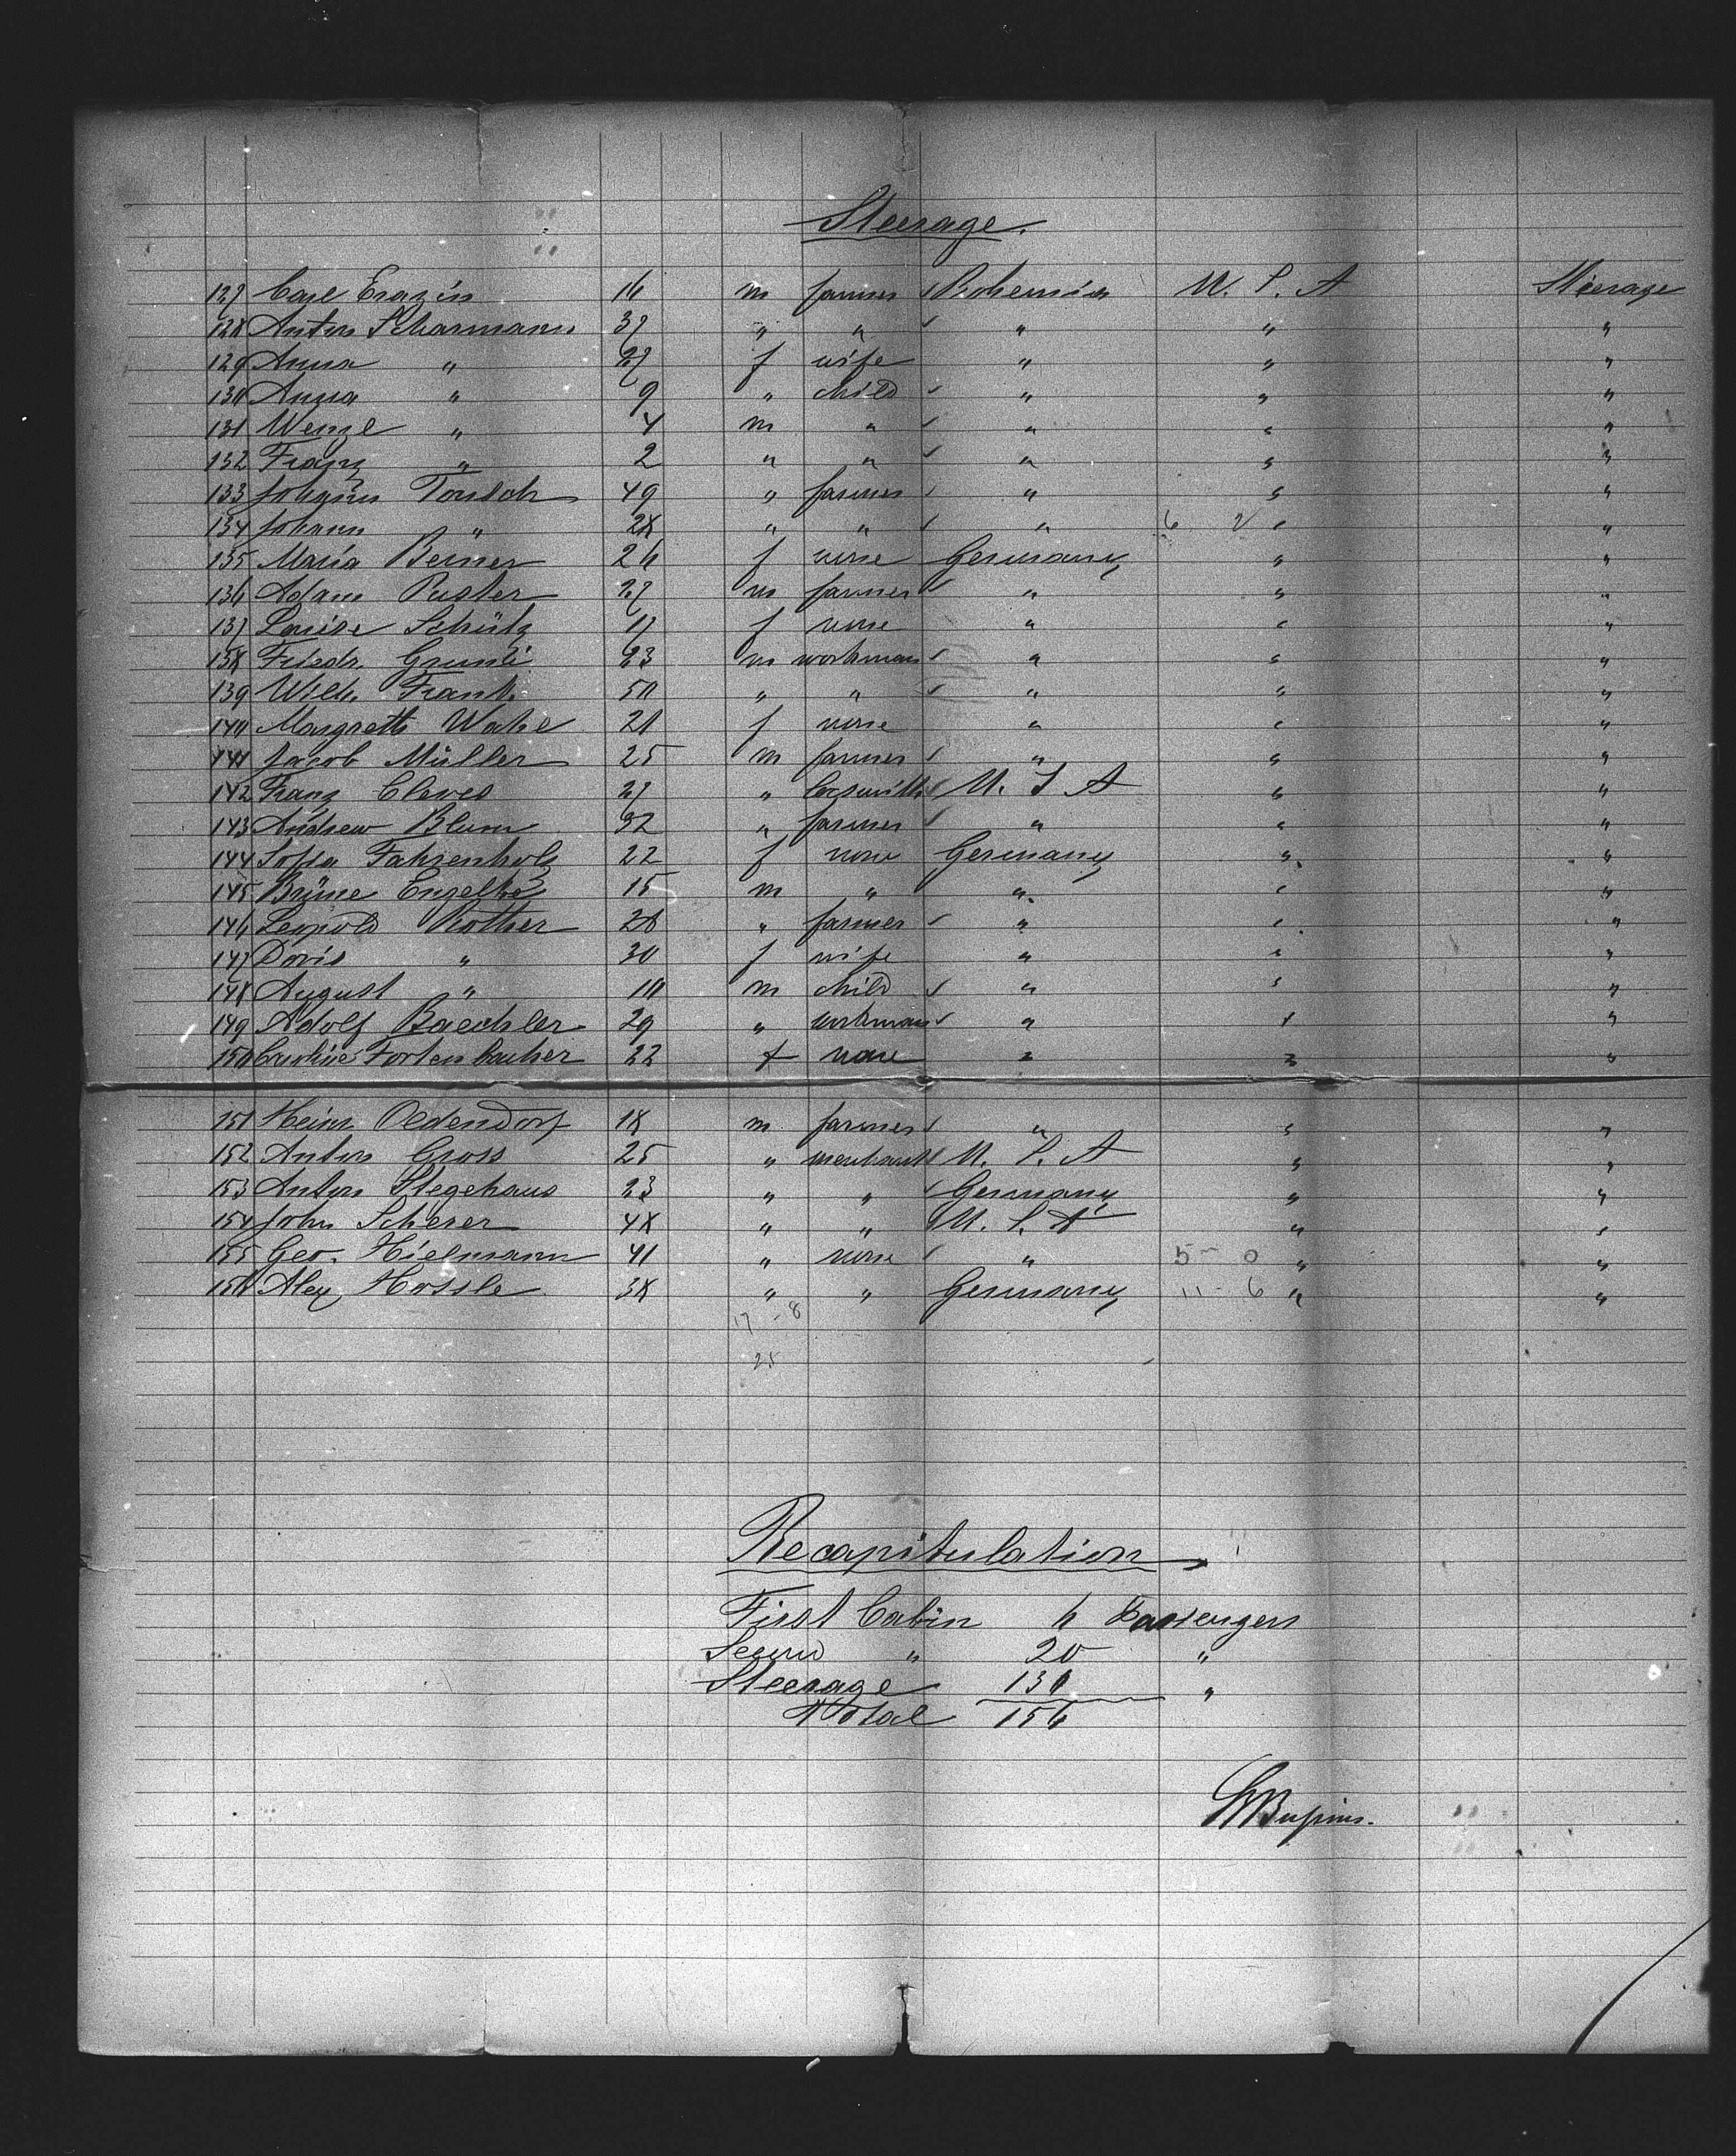 Steerage.
127 Carl Erazin 16 m farmer Bohemia U. S. A Steerage
128 Anton Scharmann 37 " " " " "
129 Anna " 27 f wife " " "
130 Anna " 9 " child " " "
131 Wenzl " 4 m " " " "
132 Franz " 2 " " " " "
133 Johann Tonsch 49 " farmer " " "
134 Johann " 28 " " " 6 2 " "
135 Maria Berner 26 f none Germany " "
136 Adam Puster 27 m farmer " " "
137 Louise Schütz 17 f none " " "
138 Friedr. Grunli 23 m workman " " "
139 Wilh. Frank 50 " " " " "
140 Margreth Wahl 21 f none " " "
141 Jacob Müller 25 m farmer " " "
142 Franz Cleves 27 " locsmith U. S A " "
143 Andrew Blum 32 " farmer " " "
144 Sofia Fahrenholz 22 f none Germany " "
145 Brüne Engelke 15 m " " " "
146 Leopold Rother 28 " farmer " " "
147 Doris " 30 f wife " " "
148 August " 10 m child " " "
149 Adolf Baechler 29 " workman " " "
150 Caroline Fortenbacher 22 f none " " "
151 Heinr Oldendorf 18 m farmer " " "
152 Anton Gross 25 " merchant U. S. A " "
153 Anton Stegehaus 23 " " Germany " "
154 John Scherer 48 " " U. S. A " "
155 Geo. Hielmann 41 " none " 5 - 0 " "
156 Alex Hossle 38 " " Germany 11 - 6 " "
17 - 8
25
Recapitulation
First Cabin 6 Passengers
Second " 20 "
Steerage 130 "
Total 156